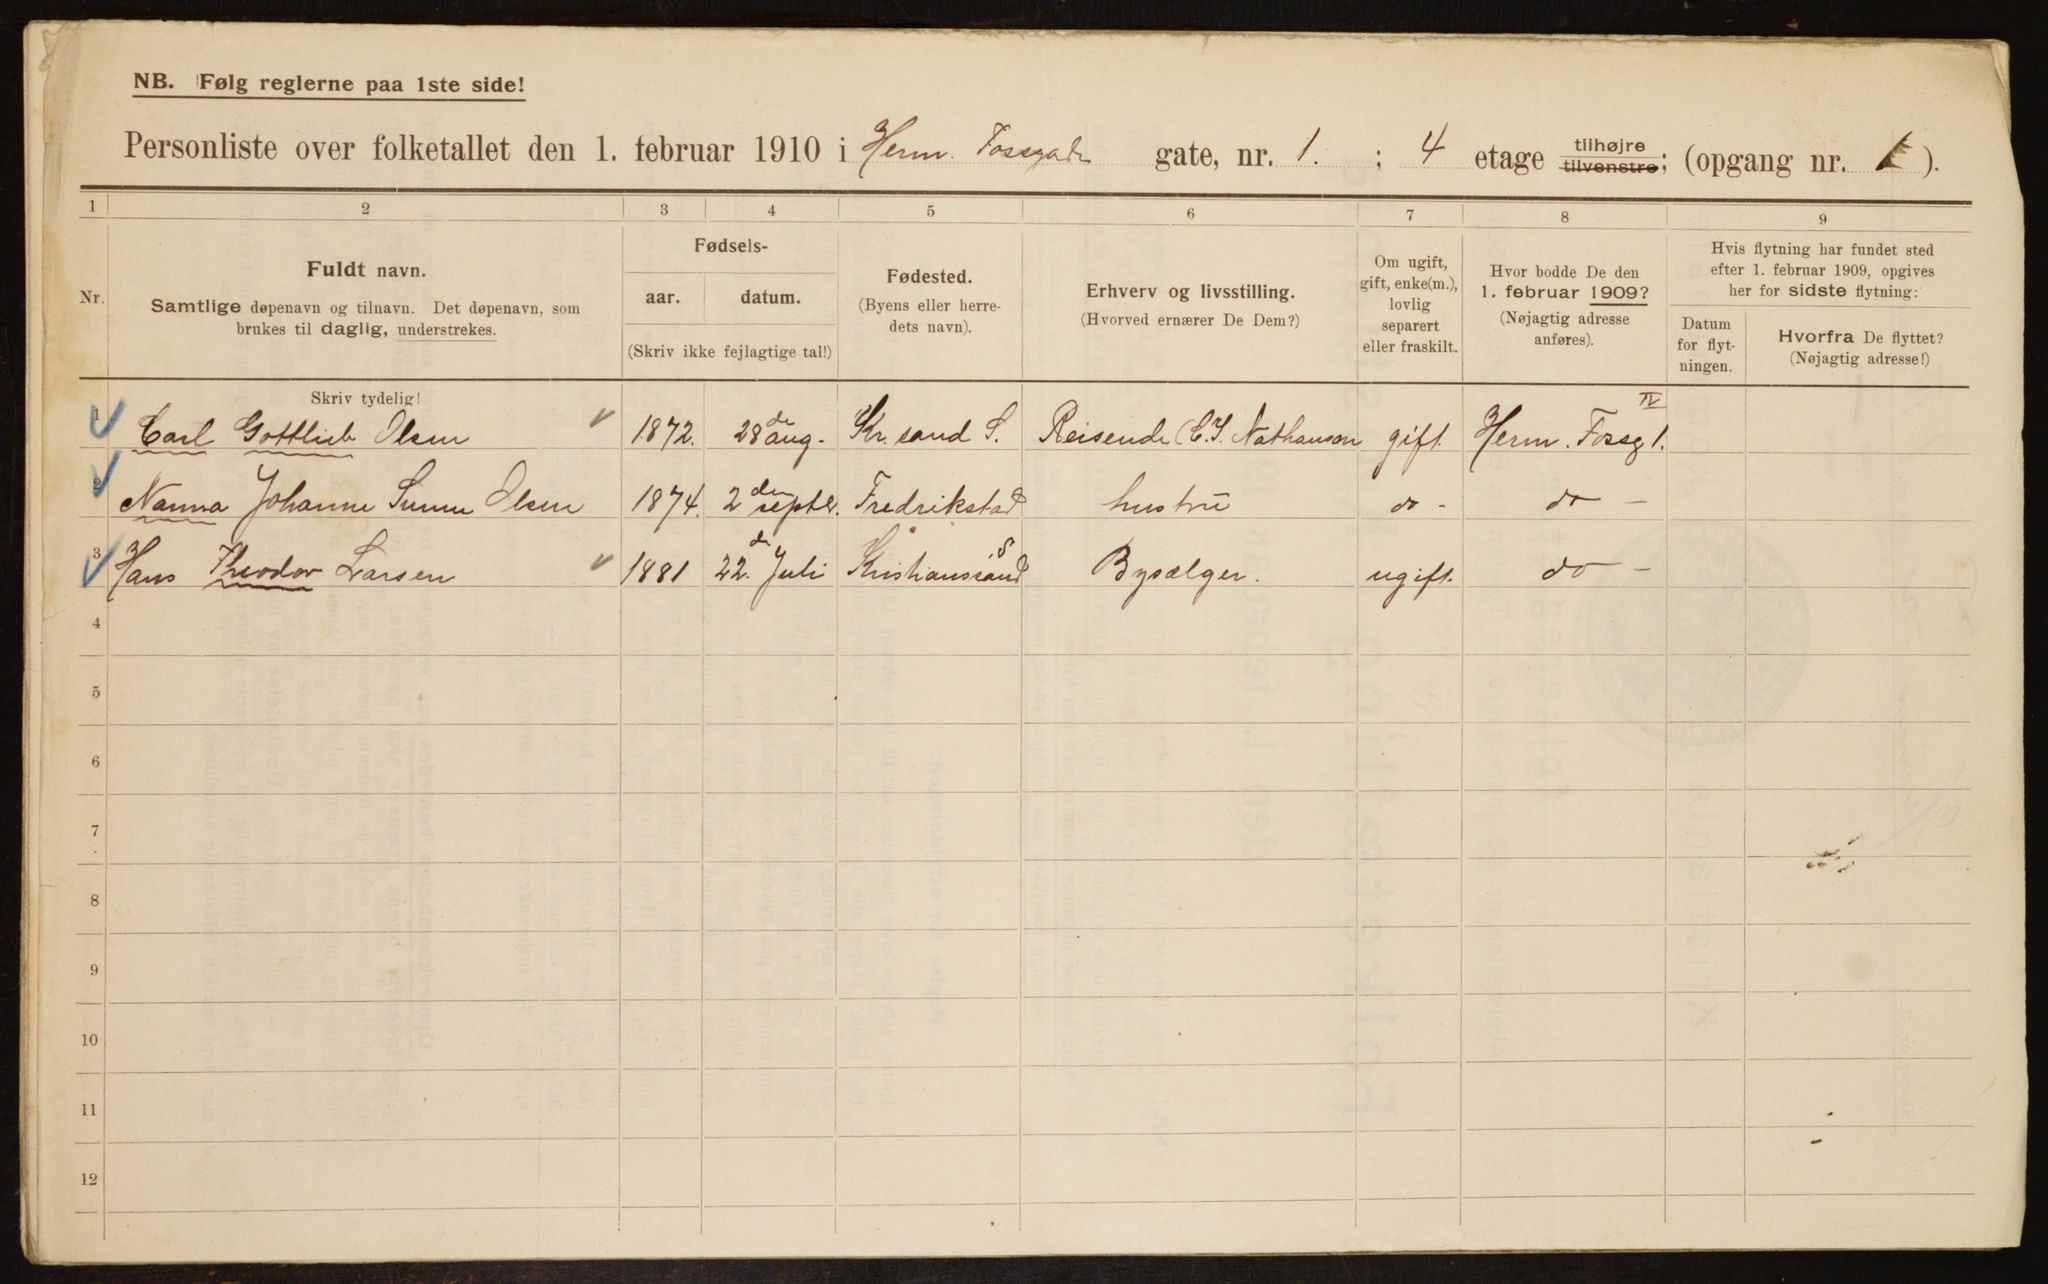 NB. Følg reglerne paa 1ste side!
Personliste over folketallet den 1. februar 1910 i Herm. Fossgade gate, nr. 1. ; 4 etage tilhøjre tilvenstre; (opgang nr. 1 ).
1 2 3 4 5 6 7 8 9
Nr.
Fuldt navn.
Samtlige døpenavn og tilnavn. Det døpenavn, som
brukes til daglig, understrekes.
Skriv tydelig!
Fødsels-
aar. datum.
(Skriv ikke fejlagtige tal!)
Fødested.
(Byens eller herre-
dets navn).
Erhverv og livsstilling.
(Hvorved ernærer De Dem?)
Om ugift,
gift, enke(m.),
lovlig
separert
eller fraskilt.
Hvor bodde De den
1. februar 1909?
(Nøjagtig adresse
anføres).
Hvis flytning har fundet sted
efter 1. februar 1909, opgives
her for sidste flytning:
Datum
for flyt-
ningen.
Hvorfra De flyttet?
(Nøjagtig adresse!)
1 Carl Gottlieb Olsen 1872. 28 de aug. Kr. sand S. Reisende (C. I. Nathanson gift. Herm. Fossg 1. IV
2 Nanna Johanne Olsen 1874. 2 den septbr. Fredrikstad hustru do - do -
3 Hans Theodor Larsen 1881 22. de Juli Kristianssand S Bysælger. ugift. do -
4
5
6
7
8
9
10
11
12